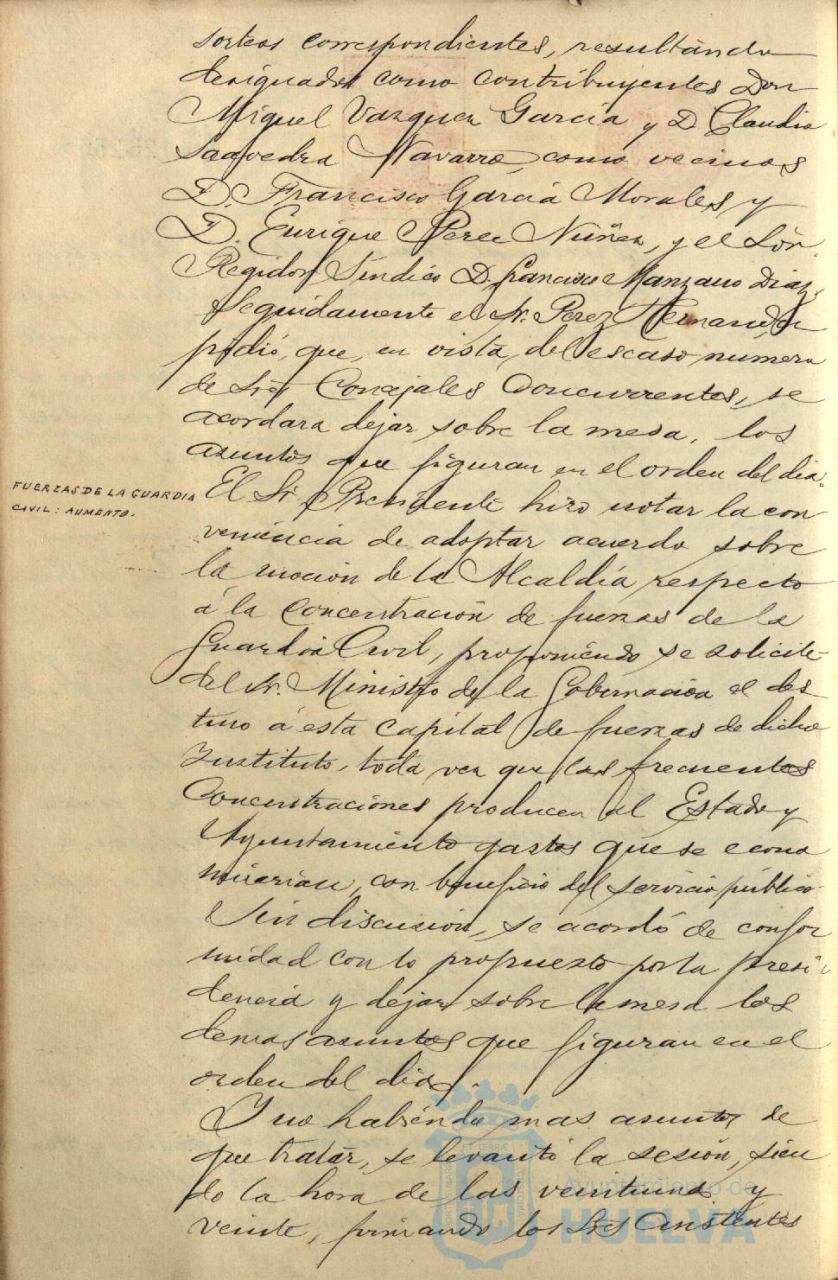 sorteos correspondientes, resultando
designados como contribuyentes Don
Miguel Vazquez García y D. Claudio
Saavedra Navarro, como vecinos
D. Francisco García Morales, y
D. Enrique Perez Nuñez, y el Sór.
Regidor Síndico D. Francisco Manzano Diaz.
Seguidamente el Sr. Perez Hernandez
pidió, que, en vista, del escaso numero
de Sres Concejales concurrentes, se
acordara dejar sobre la mesa, los
asuntos que figuran en el orden del dia.
FUERZAS DE LA GUARDIA
CIVIL: AUMENTO.
El Sr. Presidente hizo notar la con
veniencia de adoptar acuerdo sobre
la moción de la Alcaldía respecto
á la concentración de fuerzas de la
Guardia Civil, proponiendo se solicite
del Sr. Ministro de la Gobernación el des
tino á esta capital de fuerzas de dicho
Instituto, toda vez que las frecuentes
concentraciones producen al Estado y
Ayuntamiento gastos que se econo
mizarian, con beneficio del servicio público.
Sin discusión, se acordó de confor
midad con lo propuesto por la presi
dencia y dejar sobre la mesa los
demas asuntos que figuran en el
orden del dia.
Y no habiendo mas asuntos de
que tratar, se levantó la sesión, sien
do la hora de las veintiuna y
veinte, firmando los Sres asistentes
Ayuntamiento de
HUELVA